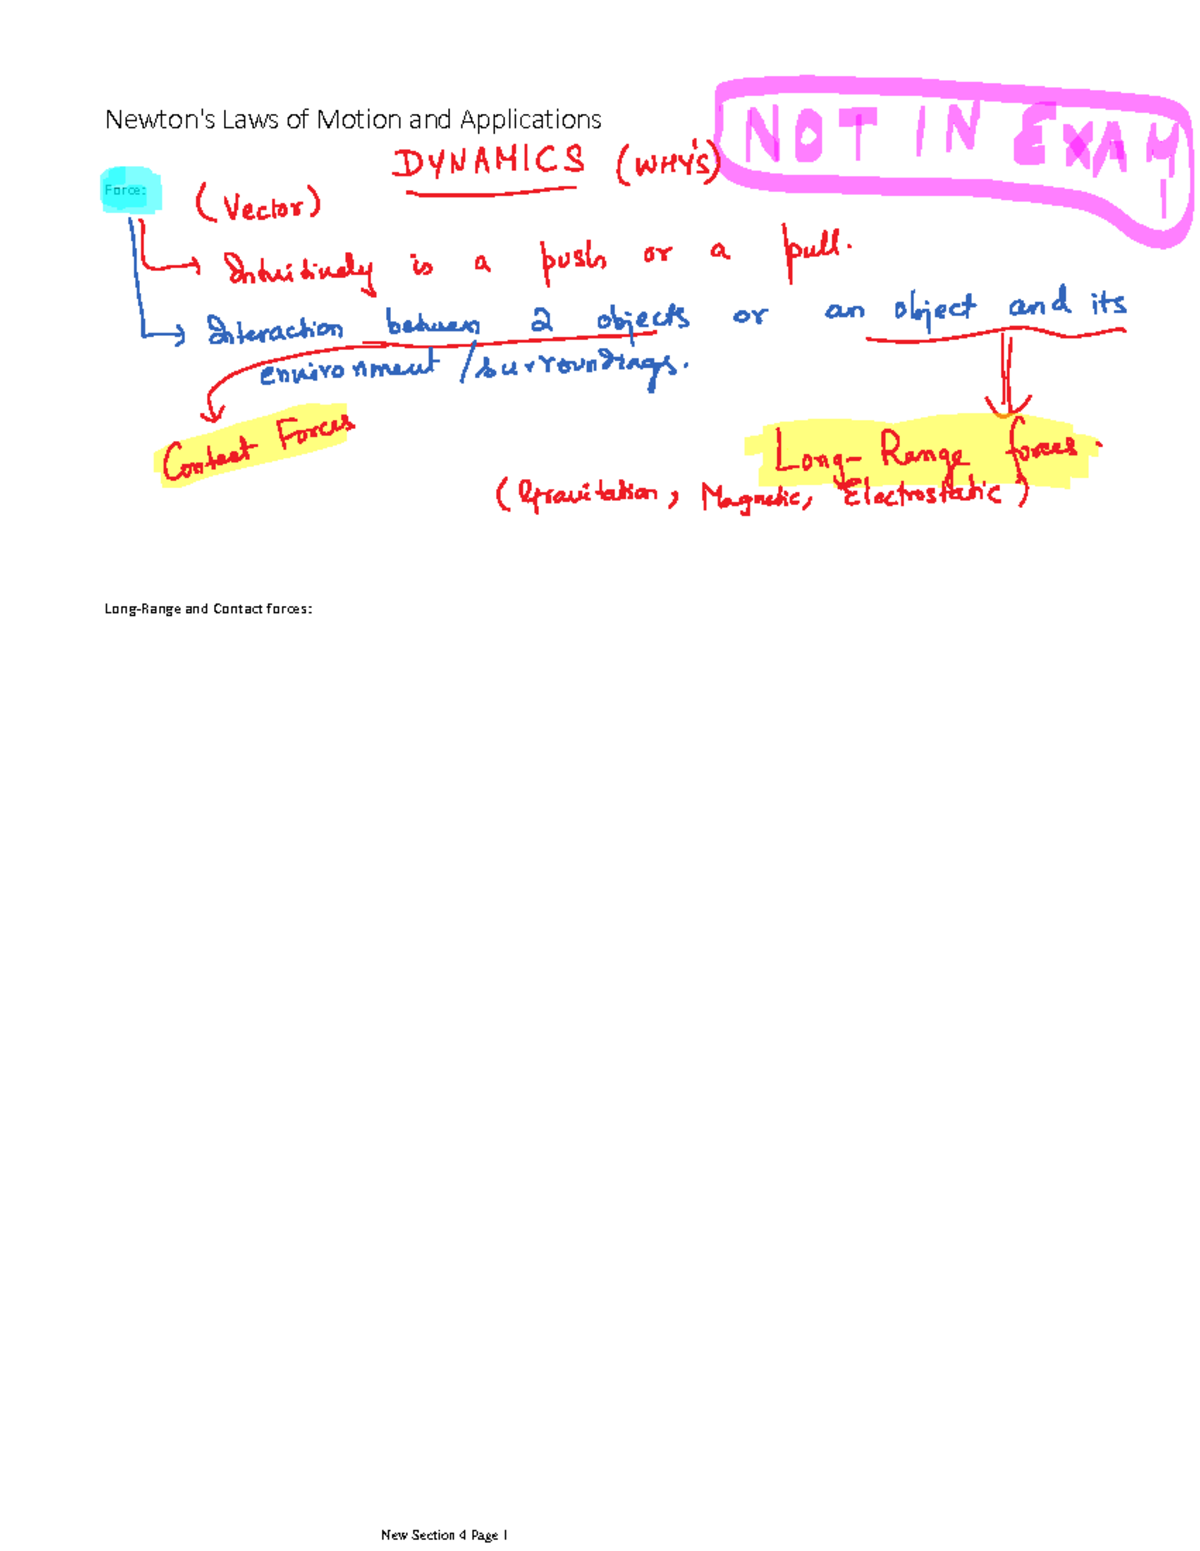 NOT IN EXAM
Newton's Laws of Motion and Applications
DYNAMICS (WHY'S)
Force:
(Vector)
Intuitively is a push or a pull.
Interaction between 2 objects or an object and its
environment / surroundings.
Contact Forces
Long-Range forces.
(Gravitation, Magnetic, Electrostatic)
Long-Range and Contact forces:
New Section 4 Page 1